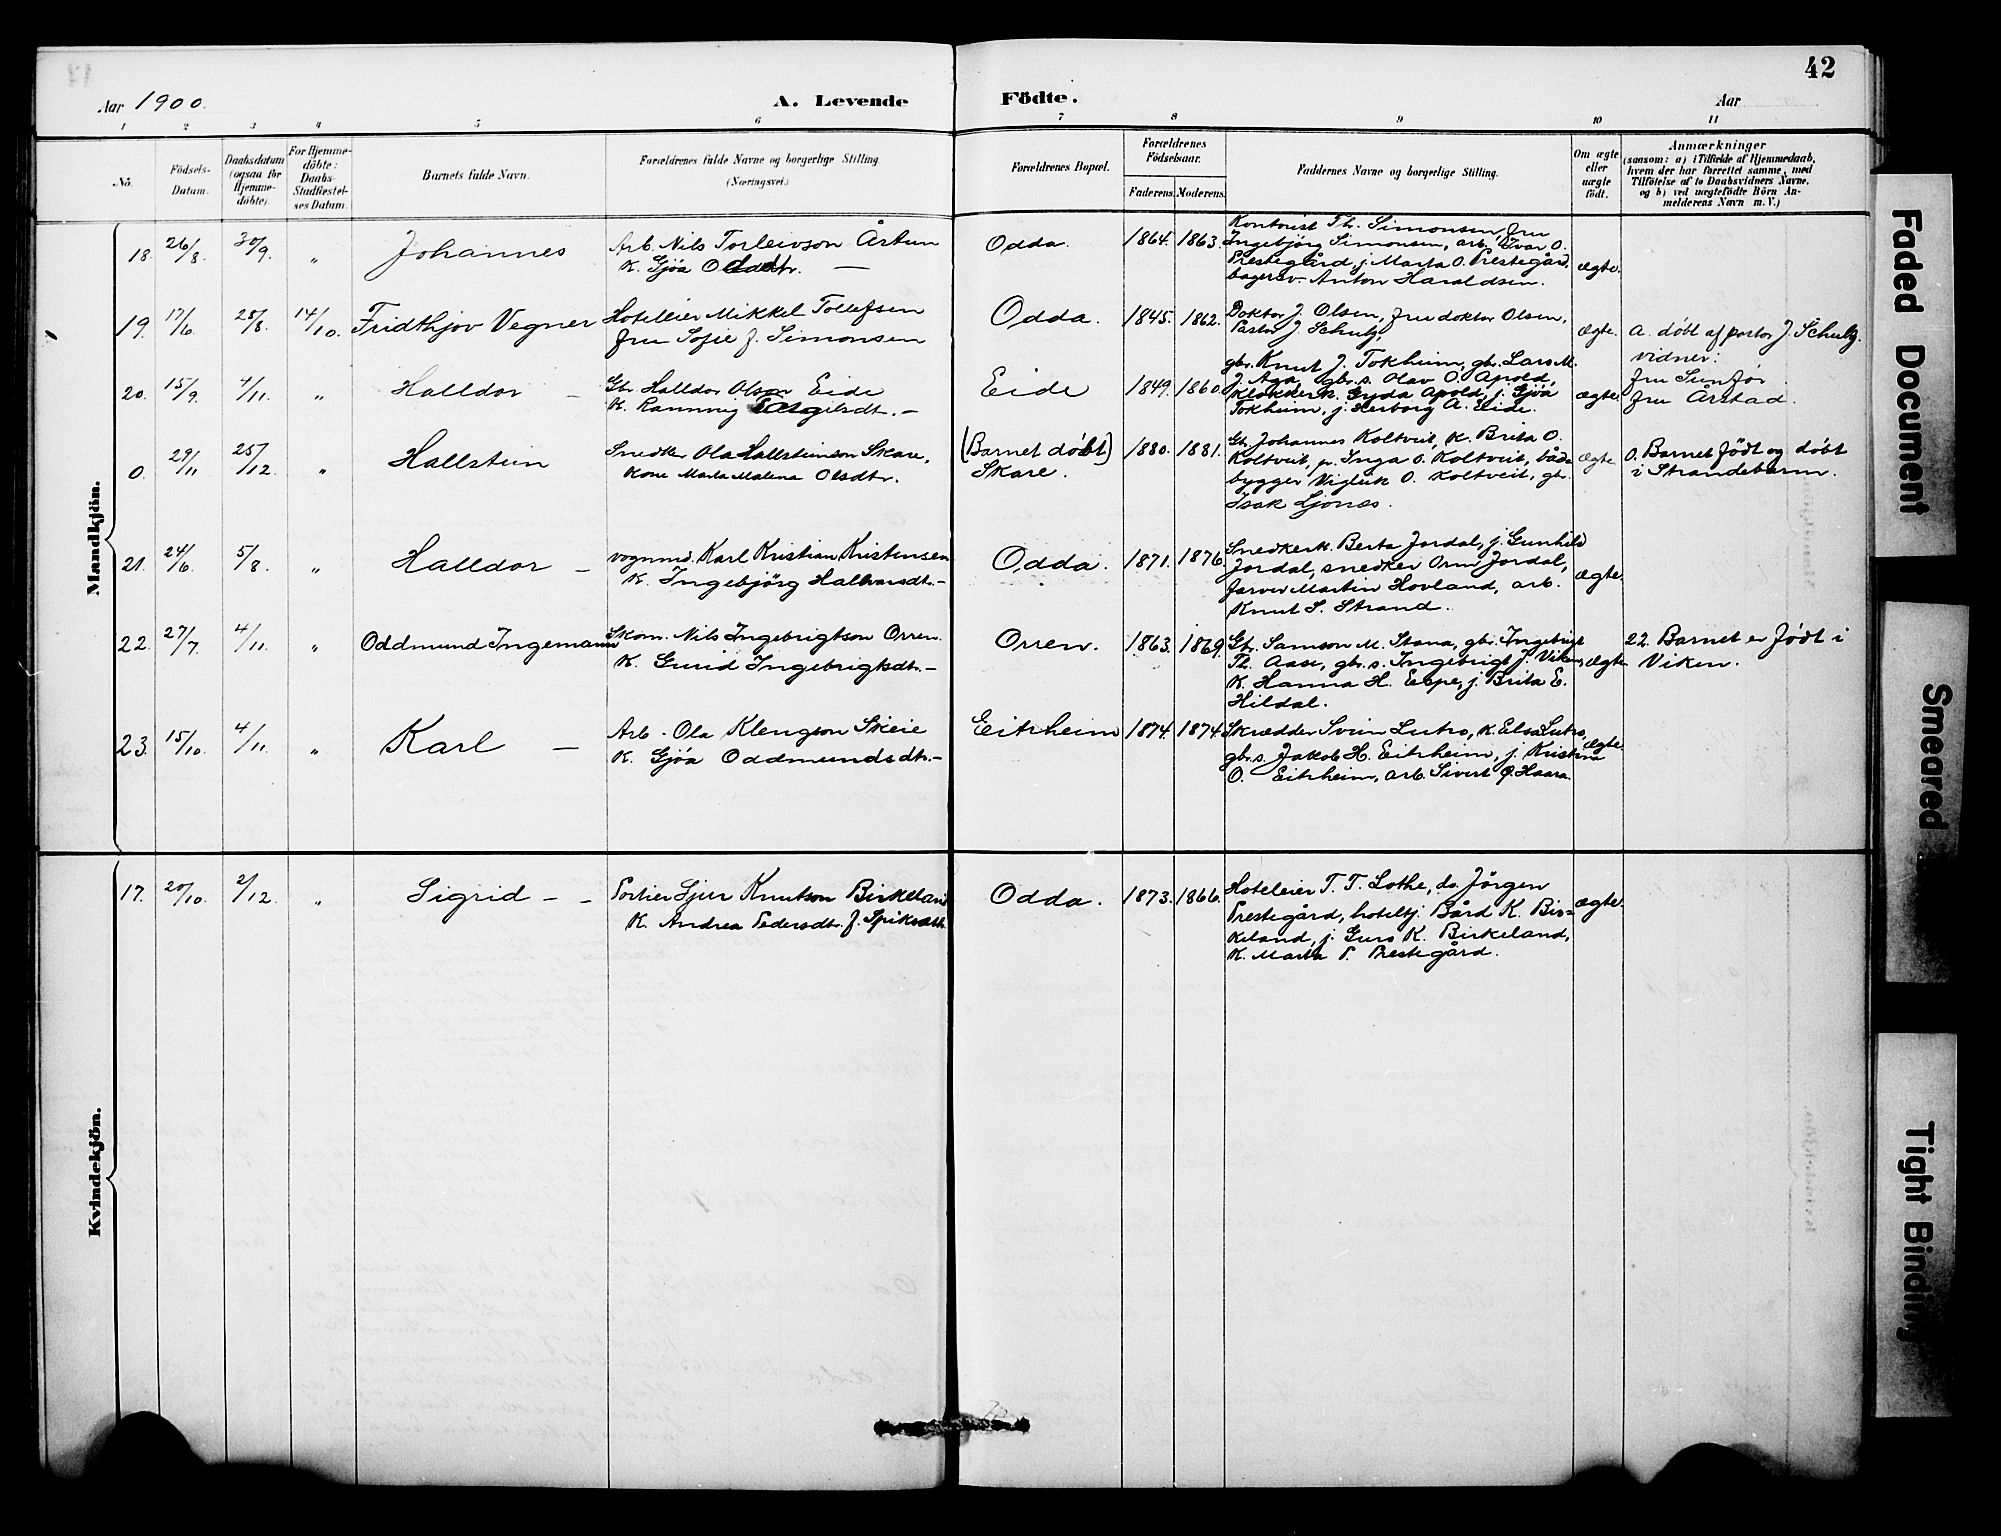 42
Aar 1900.
A. Levende Födte.
Aar
1 2 3 4 5 6 7 8 9 10 11
No.
Födsels-Datum.
Daabsdatum (ogsaa for Hjemme-döbte).
For Hjemme-döbte: Daabs-Stadfæstel-ses Datum.
Barnets fulde Navn.
Forældrenes fulde Navne og borgerlige Stilling. (Næringsvei.)
Forældrenes Bopæl.
Forældrenes Födselsaar.
Faderens. Moderens.
Faddernes Navne og borgerlige Stilling.
Om ægte eller uægte födt.
Anmærkninger
(saasom: a) i Tilfælde af Hjemmedaab,
hvem der har forrettet samme, med
Tilföielse af to Daabsvidners Navne,
og b) ved uægtefödte Börn An-
melderens Navn m. V.)
Mandkjön.
18. 26/8. 30/9. " Johannes
Arb. Nils Torleivson Årtun
K. Gjöa Oddsdtr. —
Odda. 1864. 1863.
Kontorist Th. Simonsen, fru
Ingebjörg Simonsen, arb. Ivar O.
Prestegård, j. Marta O. Prestegård,
bagersv. Anton Haraldsen.
ægte.
19. 17/6. 28/8. 14/10. Fridthjov Vegner
Hoteleier Mikkel Tollefsen
Fru Sofie f. Simonsen
Odda. 1845. 1862.
Doktor J. Olsen, fru doktor Olsen,
Pastor J. Schulz,
ægte.
a. döbt af pastor J. Schulz.
vidner:
fru Sunför
fru Årstad.
20. 15/9. 4/11. " Halldor —
Gbr. Halldor Olson Eide
K. Rannvig Torgilsdt. —
Eide 1849. 1860.
gbr. Knut J. Tokheim, gbr. Lars M.
J. Aga, gbr.s. Olav O. Apold,
Klokkerk. Gyda Apold, j. Gjöa
Tokheim, j. Herborg A. Eide.
ægte.
0. 29/11 25/12. " Hallstein
Snedker Ola Hallsteinson Skare,
Kone Marta Malena Olsdtr.
(Barnet döbt) Skare. 1880. 1881.
Gb. Johannes Koltveit, K. Brita O.
Koltveit, p. Inga O. Koltveit, båd-
bygger Vigleik O. Koltveit, gbr.
Isak Ljones.
ægte
0. Barnet födt og döbt
i Strandebarm.
21. 24/6. 5/8. " Halldor —
vognmd. Karl Kristian Kristensen
K. Ingebjörg Hallvarsdt. —
Odda. 1871. 1876.
Snedkerk. Berta Jordal, j. Gunhild
Jordal, snedker Orm Jordal,
farver Martin Hovland, arb.
Knut S. Strand.
ægte.
22. 27/7. 4/11. " Oddmund Ingemann
Skom. Nils Ingebrigtson Orren.
K. Gurid Ingebrigtsdt. —
Orren. 1863. 1869.
Gb. Samson M. Stana, gbr. Ingebrigt
Th. Aase, gbr. s. Ingebrigt J. Viken,
K. Hanna H. Espe, j. Brita E.
Hildal.
ægte
22. Barnet er födt i
Viken.
23. 15/10. 4/11. " Karl —
Arb. Ola Klengson Skeie
K. Gjöa Oddmundsdt. —
Eitrheim 1874. 1874.
Skrædder Svein Lutro, K. Elsa Lutro,
gbr.s. Jakob H. Eitrheim, j. Kristina
O. Eitrheim, arb. Sivert Haara.
ægte.
Kvindekjön.
17. 20/10. 2/12. " Sigrid — —
Portier Sjur Knutson Birkeland
K. Andrea Pedersdt.
Odda. 1873. 1866.
Hoteleier T. T. Lothe, do Jörgen
Prestegård, hoteltj. Bård K. Bir-
keland, j. Guro K. Birkeland,
K. Marta P. Prestegård.
ægte.
Faded Document
Smeared
Tight Binding